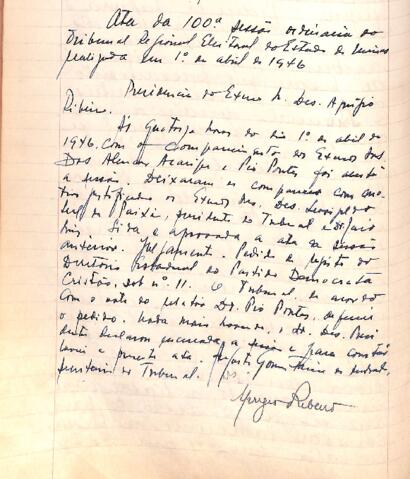 Ata da 100ª sessão ordinaria do
Tribunal Regional Eleitoral do Estado de Minas
realizada em 1º de abril de 1946
Presidencia do Exmo Sr. Des. Aprigio
Ribeiro.
Às quatorze horas do dia 1º de abril de
1946, com o comparecimento dos Exmos Srs.
Drs Alencar Araripe e Pio Pontes foi aberta
a sessão. Deixaram de comparecer com mo-
tivo justificado os Exmos Srs. Des. Leopoldo
Paixão, presidente do Tribunal e
Lida e aprovada a ata da sessão
anterior. Julgamento. Pedido de registo do
Diretorio Estadoal do Partido Democrata
Cristão, sob nº 11. O Tribunal, de acordo
com o voto do relator Dr. Pio Pontes, deferiu
o pedido. Nada mais havendo, o Sr. Des. Presi
dente declarou encerrada a sessão e para constar
lavrei a presente ata. de Andrade,
secretario do Tribunal.
Aprigio Ribeiro